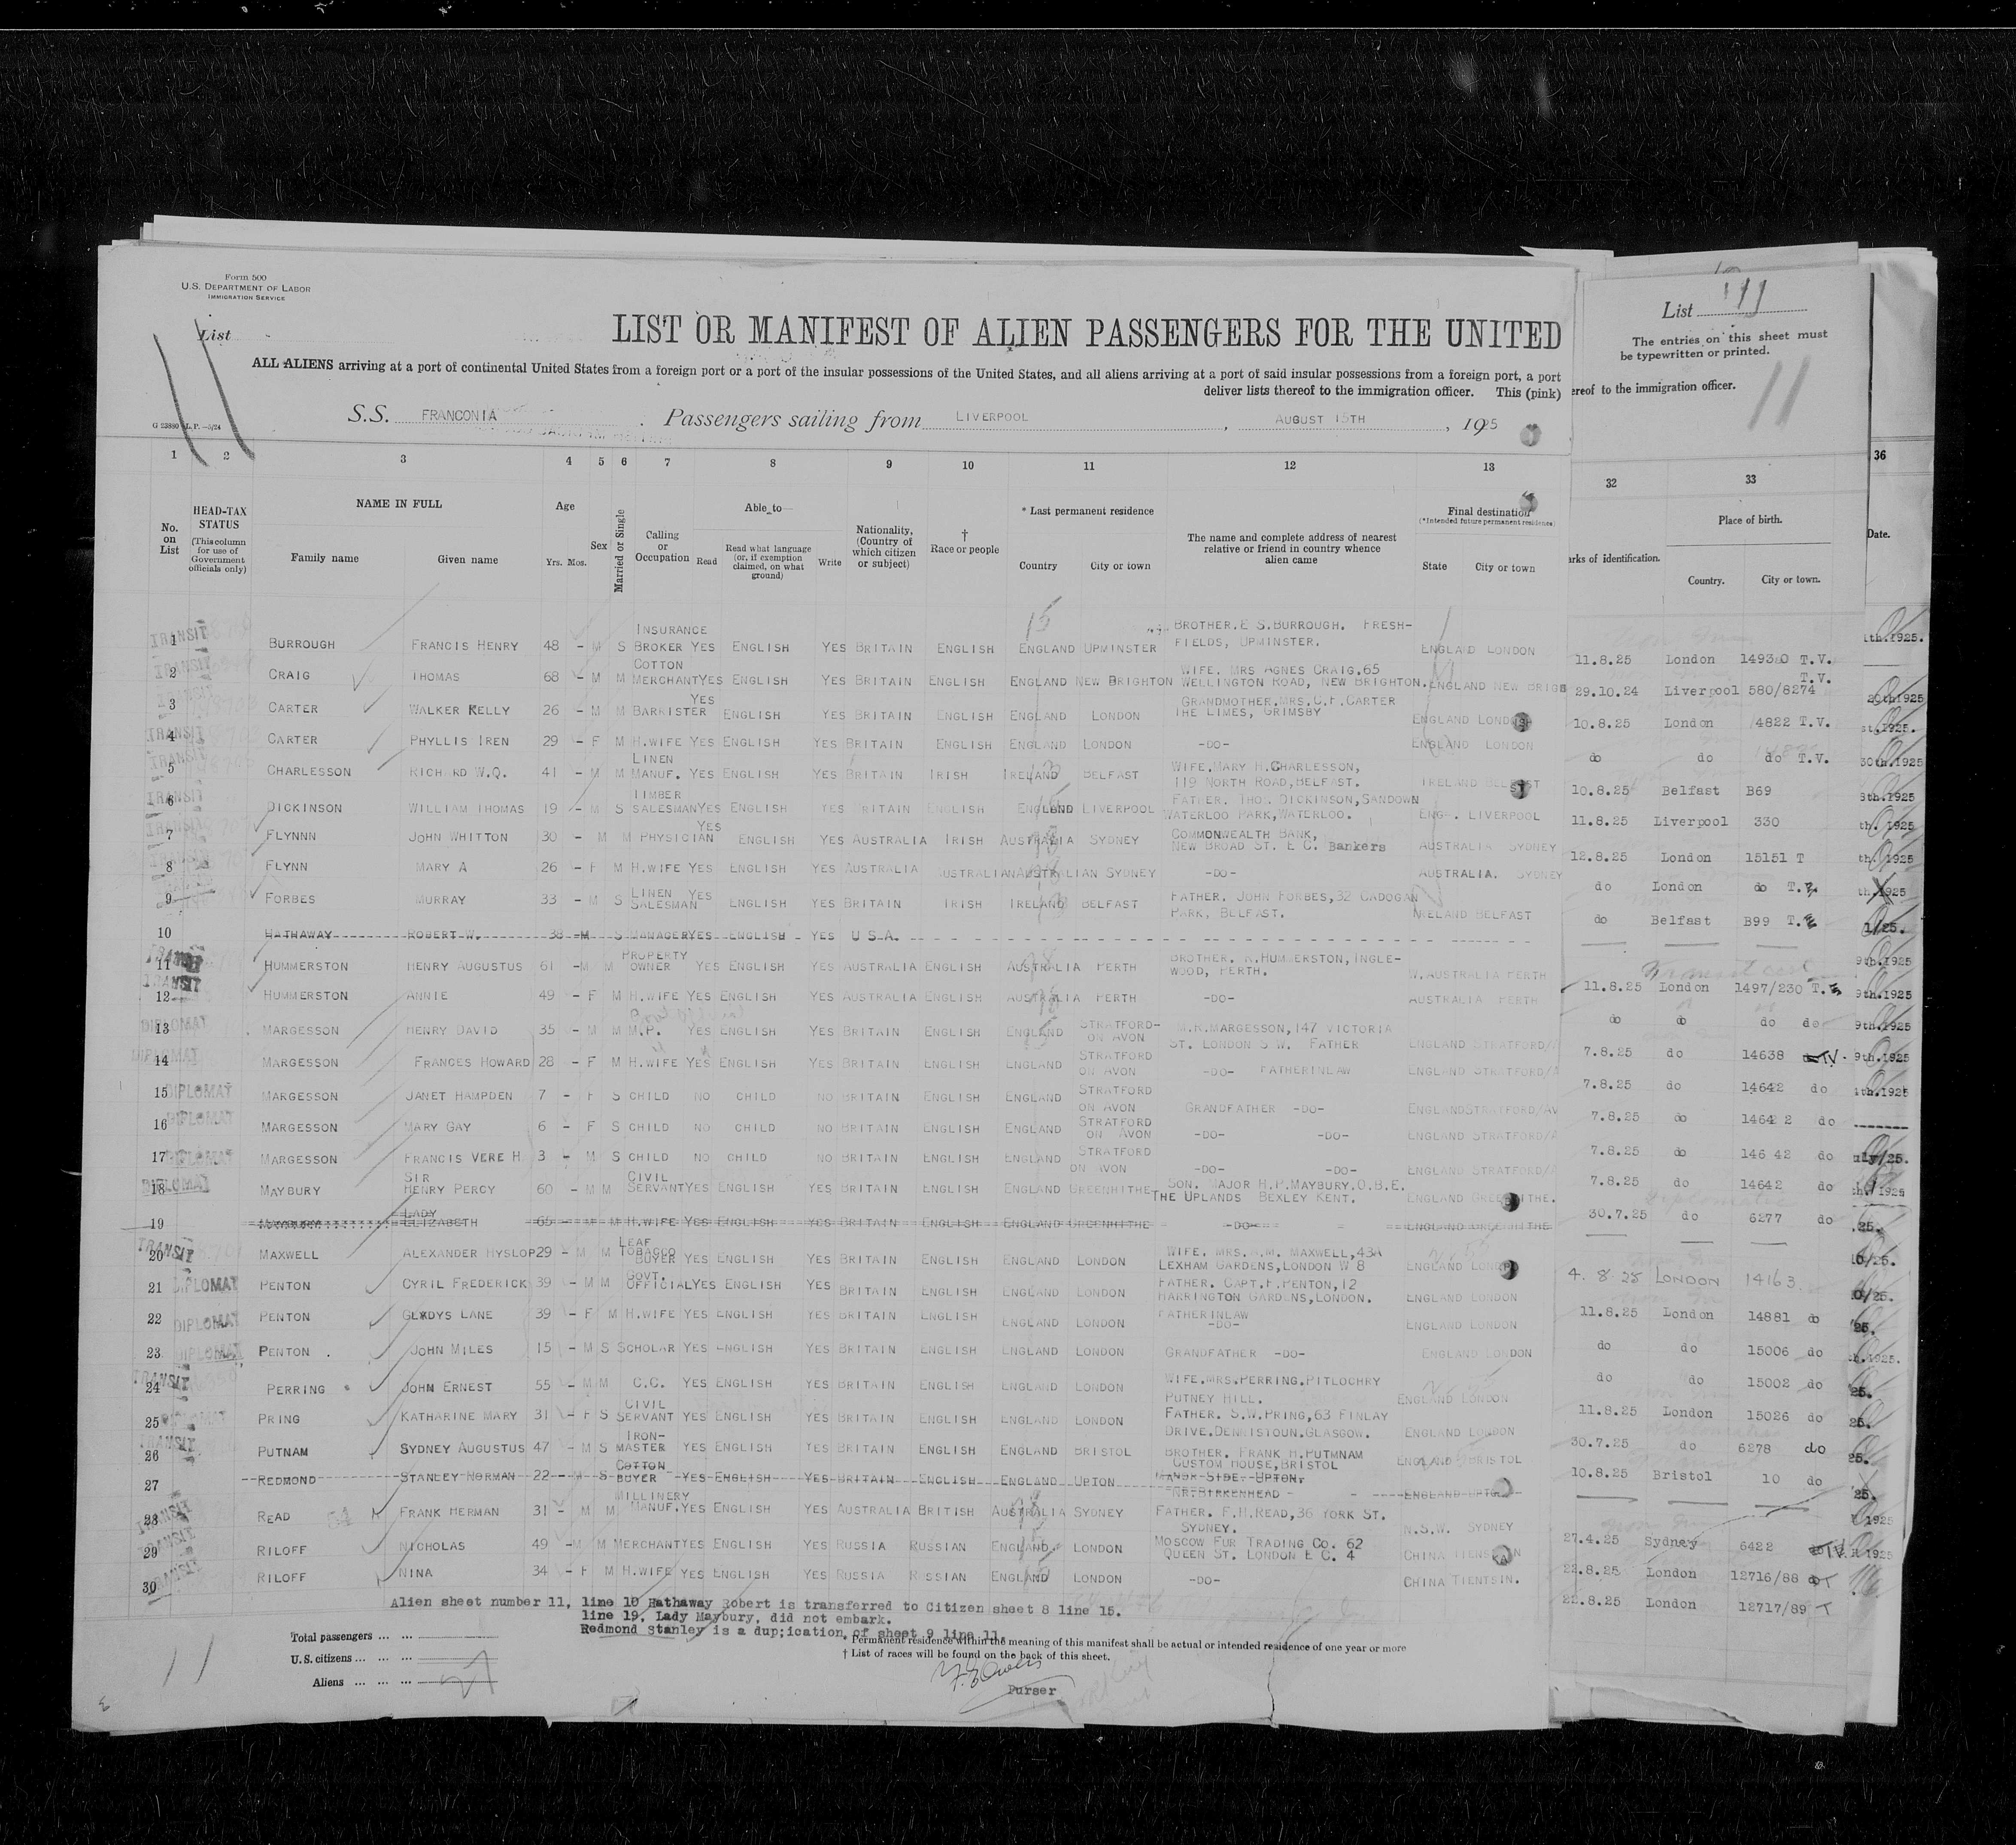 Form 500
U.S. DEPARTMENT OF LABOR
IMMIGRATION SERVICE
List
LIST OR MANIFEST OF ALIEN PASSENGERS FOR THE UNITED
ALL ALIENS arriving at a port of continental United States from a foreign port or a port of the insular possessions of the United States, and all aliens arriving at a port of said insular possessions from a foreign port, a port
deliver lists thereof to the immigration officer. This (pink)
S.S. FRANCONIA Passengers sailing from LIVERPOOL, AUGUST 15TH, 1925
List 11
The entries on this sheet must
be typewritten or printed.
ereof to the immigration officer.
11
1 2 3 4 5 6 7 8 9 10 11 12 13 32 33 36
No. on List
HEAD-TAX STATUS (This column for use of Government officials only)
NAME IN FULL
Family name Given name
Age Yrs. Mos.
Sex
Married or Single
Calling or Occupation
Able to—
Read Read what language (or, if exemption claimed, on what ground) Write
Nationality, (Country of which citizen or subject)
† Race or people
* Last permanent residence
Country City or town
The name and complete address of nearest relative or friend in country whence alien came
Final destination (*Intended future permanent residence)
State City or town
arks of identification.
Place of birth.
Country. City or town.
Date.
1 TRANSIT BURROUGH FRANCIS HENRY 48 - M S INSURANCE BROKER YES ENGLISH YES BRITAIN ENGLISH ENGLAND UPMINSTER BROTHER.E S.BURROUGH. FRESH-FIELDS, UPMINSTER. ENGLAND LONDON
2 TRANSIT CRAIG THOMAS 68 - M M COTTON MERCHANT YES ENGLISH YES BRITAIN ENGLISH ENGLAND NEW BRIGHTON WIFE. MRS AGNES CRAIG.65 WELLINGTON ROAD, NEW BRIGHTON. ENGLAND NEW BRIGH
3 CARTER WALKER KELLY 26 - M M BARRISTER YES ENGLISH YES BRITAIN ENGLISH ENGLAND LONDON GRANDMOTHER.MRS.C.F.CARTER THE LIMES, GRIMSBY ENGLAND LONDON
4 TRANSIT CARTER PHYLLIS IREN 29 - F M H.WIFE YES ENGLISH YES BRITAIN ENGLISH ENGLAND LONDON -DO- ENGLAND LONDON
5 TRANSIT CHARLESSON RICHARD W.Q. 41 - M M LINEN MANUF. YES ENGLISH YES BRITAIN IRISH IRELAND BELFAST WIFE.MARY H.CHARLESSON, 119 NORTH ROAD,BELFAST. IRELAND BELFAST
6 TRANSIT DICKINSON WILLIAM THOMAS 19 - M S TIMBER SALESMAN YES ENGLISH YES BRITAIN ENGLISH ENGLAND LIVERPOOL FATHER. THOS DICKINSON,SANDOWN WATERLOO PARK,WATERLOO. ENG. LIVERPOOL
7 FLYNNN JOHN WHITTON 30 - M M PHYSICIAN YES ENGLISH YES AUSTRALIA IRISH AUSTRALIA SYDNEY COMMONWEALTH BANK, NEW BROAD ST. E C. Bankers AUSTRALIA SYDNEY
8 FLYNN MARY A 26 - F M H.WIFE YES ENGLISH YES AUSTRALIA AUSTRALIAN AUSTRALIAN SYDNEY -DO- AUSTRALIA. SYDNEY
9 FORBES MURRAY 33 - M S LINEN SALESMAN YES ENGLISH YES BRITAIN IRISH IRELAND BELFAST FATHER. JOHN FORBES,32 CADOGAN PARK, BELFAST. IRELAND BELFAST
10 HATHAWAY ROBERT W. 38 - M S MANAGER YES ENGLISH YES U S A.
11 TRANSIT HUMMERSTON HENRY AUGUSTUS 61 - M M PROPERTY OWNER YES ENGLISH YES AUSTRALIA ENGLISH AUSTRALIA PERTH BROTHER. HUMMERSTON, INGLE-WOOD, PERTH. W.AUSTRALIA PERTH
12 TRANSIT HUMMERSTON ANNIE 49 - F M H.WIFE YES ENGLISH YES AUSTRALIA ENGLISH AUSTRALIA PERTH -DO- AUSTRALIA PERTH
13 DIPLOMAT MARGESSON HENRY DAVID 35 - M M M.P. YES ENGLISH YES BRITAIN ENGLISH ENGLAND STRATFORD-ON AVON M.R.MARGESSON,147 VICTORIA ST. LONDON S W. FATHER ENGLAND STRATFORD/A
14 DIPLOMAT MARGESSON FRANCES HOWARD 28 - F M H.WIFE YES ENGLISH YES BRITAIN ENGLISH ENGLAND STRATFORD ON AVON -DO- FATHERINLAW ENGLAND STRATFORD/A
15 DIPLOMAT MARGESSON JANET HAMPDEN 7 - F S CHILD NO CHILD NO BRITAIN ENGLISH ENGLAND STRATFORD ON AVON GRANDFATHER -DO- ENGLAND STRATFORD/AV
16 DIPLOMAT MARGESSON MARY GAY 6 - F S CHILD NO CHILD NO BRITAIN ENGLISH ENGLAND STRATFORD ON AVON -DO- -DO- ENGLAND STRATFORD/A
17 DIPLOMAT MARGESSON FRANCIS VERE H 3 - M S CHILD NO CHILD NO BRITAIN ENGLISH ENGLAND STRATFORD ON AVON -DO- -DO- ENGLAND STRATFORD/A
18 DIPLOMAT MAYBURY SIR HENRY PERCY 60 - M M CIVIL SERVANT YES ENGLISH YES BRITAIN ENGLISH ENGLAND GREENHITHE SON. MAJOR H.P.MAYBURY.O.B.E. THE UPLANDS BEXLEY KENT. ENGLAND GREENHITHE.
19 MAYBURY LADY ELIZABETH 65 M H.WIFE YES ENGLISH YES BRITAIN ENGLISH ENGLAND GREENHITHE -DO- ENGLAND GREENHITHE
20 TRANSIT MAXWELL ALEXANDER HYSLOP 29 - M M LEAF TOBACCO BUYER YES ENGLISH YES BRITAIN ENGLISH ENGLAND LONDON WIFE. MRS.A.M. MAXWELL,43A LEXHAM GARDENS,LONDON W 8 ENGLAND LONDON
21 DIPLOMAT PENTON CYRIL FREDERICK 39 - M M GOVT. OFFICIAL YES ENGLISH YES BRITAIN ENGLISH ENGLAND LONDON FATHER. CAPT.F.PENTON,12 HARRINGTON GARDENS,LONDON. ENGLAND LONDON
22 DIPLOMAT PENTON GLADYS LANE 39 - F M H.WIFE YES ENGLISH YES BRITAIN ENGLISH ENGLAND LONDON FATHERINLAW -DO- ENGLAND LONDON
23 DIPLOMAT PENTON JOHN MILES 15 - M S SCHOLAR YES ENGLISH YES BRITAIN ENGLISH ENGLAND LONDON GRANDFATHER -DO- ENGLAND LONDON
24 TRANSIT PERRING JOHN ERNEST 55 - M M C.C. YES ENGLISH YES BRITAIN ENGLISH ENGLAND LONDON WIFE.MRS.PERRING.PITLOCHRY PUTNEY HILL. ENGLAND LONDON
25 DIPLOMAT PRING KATHARINE MARY 31 - F S CIVIL SERVANT YES ENGLISH YES BRITAIN ENGLISH ENGLAND LONDON FATHER. S.W.PRING,63 FINLAY DRIVE.DENNISTOUN.GLASGOW. ENGLAND LONDON
26 TRANSIT PUTNAM SYDNEY AUGUSTUS 47 - M S IRON-MASTER YES ENGLISH YES BRITAIN ENGLISH ENGLAND BRISTOL BROTHER. FRANK H.PUTMNAM CUSTOM HOUSE,BRISTOL ENGLAND BRISTOL
27 REDMOND STANLEY NORMAN 22 - M S COTTON BUYER YES ENGLISH YES BRITAIN ENGLISH ENGLAND UPTON MANOR SIDE. UPTON. NR.BIRKENHEAD ENGLAND UPTON
28 TRANSIT READ FRANK HERMAN 31 - M M MILLINERY MANUF. YES ENGLISH YES AUSTRALIA BRITISH AUSTRALIA SYDNEY FATHER. F.H.READ,36 YORK ST. SYDNEY. N.S.W. SYDNEY
29 TRANSIT RILOFF NICHOLAS 49 - M M MERCHANT YES ENGLISH YES RUSSIA RUSSIAN ENGLAND. LONDON MOSCOW FUR TRADING CO. 62 QUEEN ST. LONDON E C. 4 CHINA TIENTSIN
30 TRANSIT RILOFF NINA 34 - F M H.WIFE YES ENGLISH YES RUSSIA RUSSIAN ENGLAND LONDON -DO- CHINA TIENTSIN.
11.8.25 London 14930 T.V.
29.10.24 Liverpool 580/8274 T.V.
10.8.25 London 14822 T.V.
do do do T.V.
10.8.25 Belfast B69
11.8.25 Liverpool 330
12.8.25 London 15151 T
do London do T.
do Belfast B99 T.
11.8.25 London 1497/230 T.
do do do do
7.8.25 do 14638 T.V.
7.8.25 do 14642 do
7.8.25 do 14642 do
7.8.25 do 14642 do
7.8.25 do 14642 do
30.7.25 do 6277 do
4. 8 25 LONDON 14163
11.8.25 London 14881 do
do do 15006 do
do do 15002 do
11.8.25 London 15026 do
30.7.25 do 6278 do
10.8.25 Bristol 10 do
27.4.25 Sydney 6422 T.V.
22.8.25 London 12716/88 T
22.8.25 London 12717/89 T
Alien sheet number 11, line 10 Hathaway Robert is transferred to Citizen sheet 8 line 15.
line 19. Lady Maybury, did not embark.
Redmond Stanley is a dup;ication of sheet 9 line 11.
* Permanent residence within the meaning of this manifest shall be actual or intended residence of one year or more
† List of races will be found on the back of this sheet.
Total passengers
U.S. citizens
Aliens 27
11
Purser